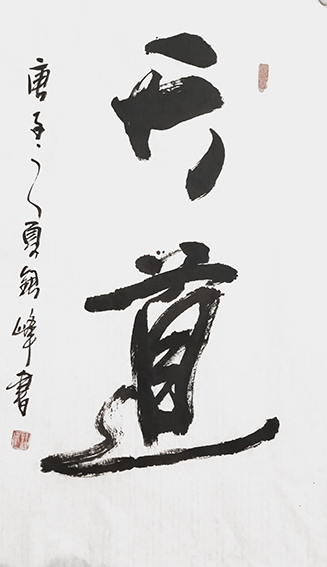 天道
庚子之夏峰書